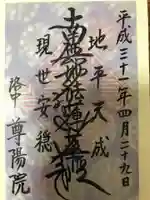 平成三十一年四月二十九日
地平天成
南無妙法蓮華経
現世安穏
洛中 尊陽院